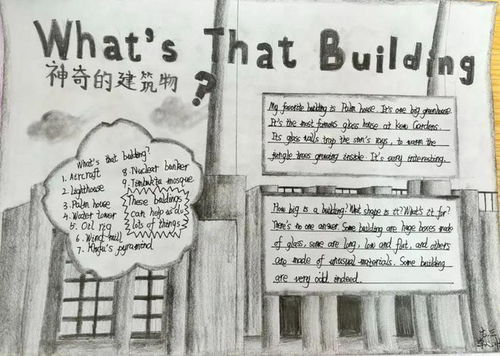 What's That Building
神奇的建筑物
?
What's that building?
1. Aircraft
2. Lighthouse
3. Palm house
4. Water tower
5. Oil rig
6. Wind mill
7. Khufu's pyramind
8. Nuclear banker
9. Timbuktu mosque
These buildings
can help us do
lots of things
My favorite building is Palm house. It's one big greenhouse.
It's the most famous glass house at Kew Gardens.
Its glass walls trap the sun's rays, to warm the
jungle trees growing inside. It's very interesting.
How big is a building? What shape is it? What's it for?
There's no one answer. Some building are huge boxes made
of glass, some are long, low and flat, and others
are made of unusual materials. Some building
are very odd indeed.